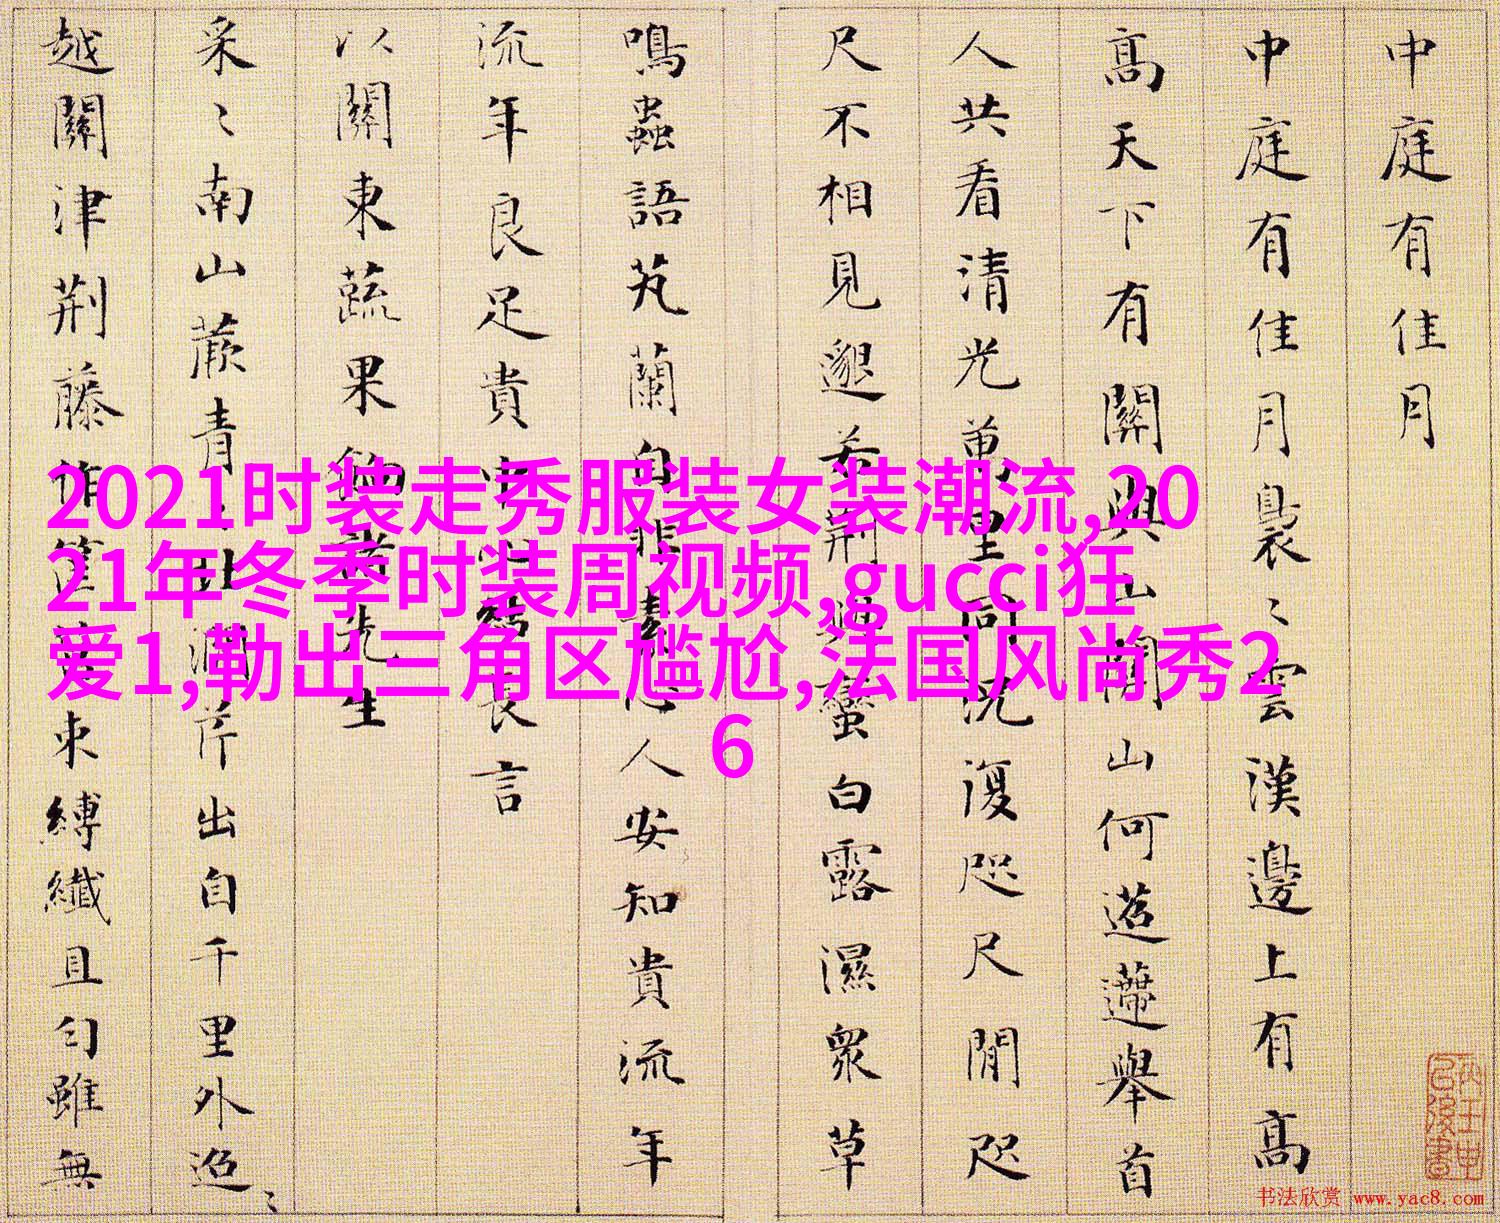 中庭有佳月
中庭有佳月裊〻雲漢邊上有高
高天下有關興山關山何迢遰舉首
人共看清光萬里同沉復咫尺閒咫
尺不相見邈若荆與蠻白露濕衆草
鳴蟲語芄蘭自非素心人安知貴流年
流年良足貴
長言
以關東蔬果
先生
采〻南山蕨青
澗芹出自千里外迢〻
越關津荆藤作筐
束縛纖且勻雖無
2021时装走秀服装女装潮流,20
21年冬季时装周视频,gucci狂
爱1,勒出三角区尴尬,法国风尚秀2
6
书法欣赏 www.yac8.com